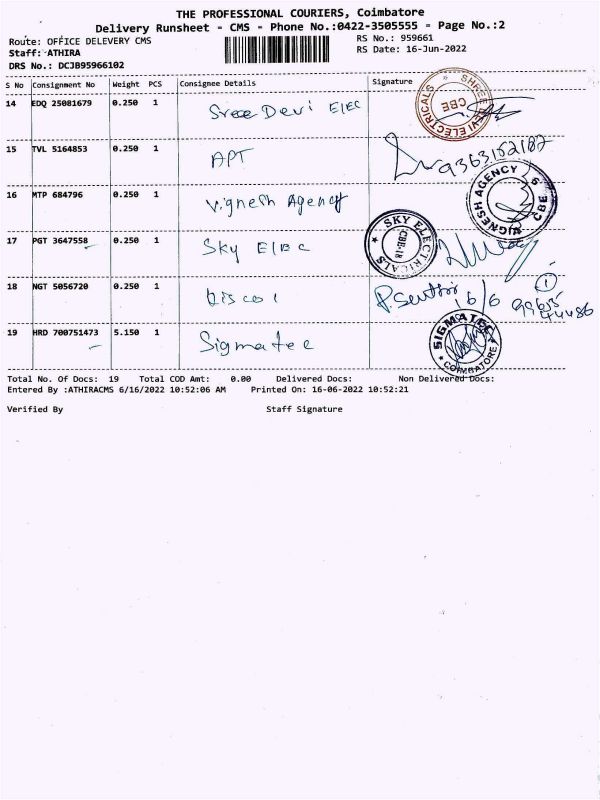 THE PROFESSIONAL COURIERS, Coimbatore
Delivery Runsheet - CMS - Phone No.:0422-3505555 - Page No.:2
Route: OFFICE DELEVERY CMS
RS No.: 959661
Staff: ATHIRA
RS Date: 16-Jun-2022
DRS No.: DCJB95966102
S No Consignment No Weight PCS Consignee Details Signature
14 EDQ 25081679 0.250 1 Sree Devi Elec
SHREE DEVI ELECTRICALS CBE
15 TVL 5164853 0.250 1 APT 9363152187
16 MTP 684796 0.250 1 Vignesh Agency
VIGNESH AGENCY CBE
17 PGT 3647558 0.250 1 Sky Elec
SKY ELECTRICALS CBE-18
18 NGT 5056720 0.250 1 P. Senthil 16/6 1
99655
44486
19 HRD 700751473 5.150 1 Sigmatec
SIGMATEC COIMBATORE
Total No. Of Docs: 19 Total COD Amt: 0.00 Delivered Docs: Non Delivered Docs:
Entered By :ATHIRACMS 6/16/2022 10:52:06 AM Printed On: 16-06-2022 10:52:21
Verified By Staff Signature